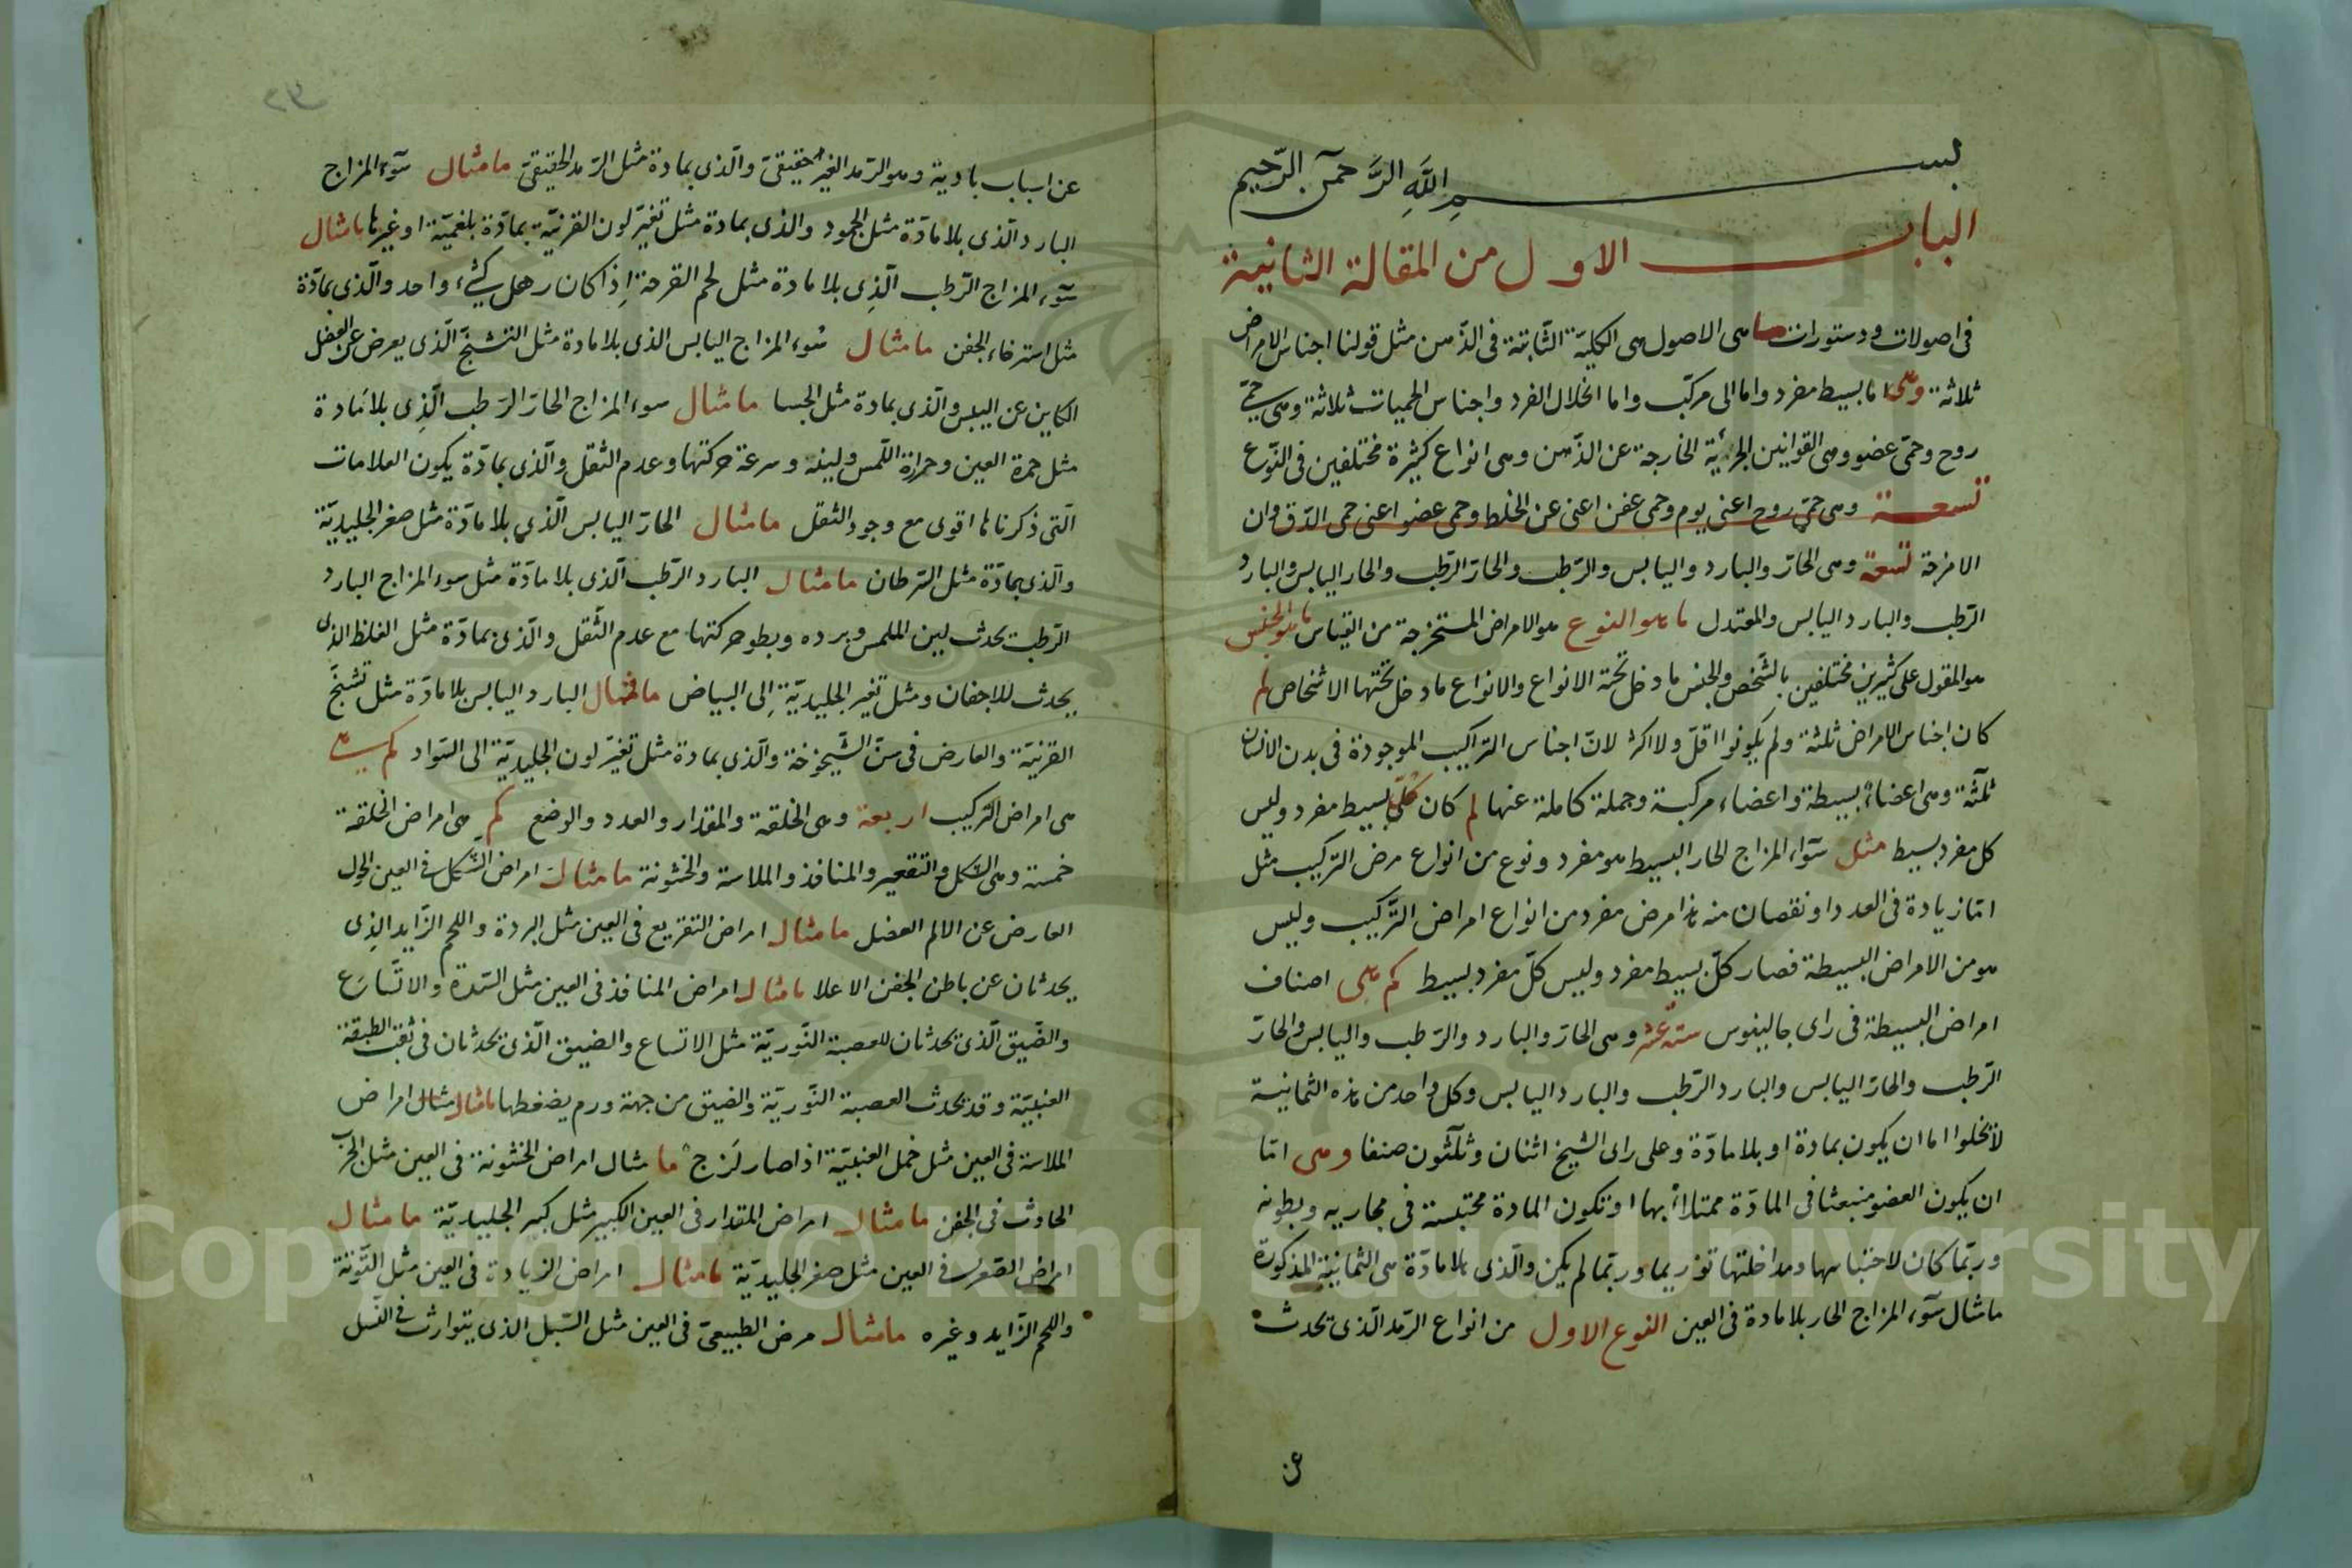 بسم الله الرَّحمن الرّحيم
الباب الاول من المقالة الثانية
فى اصولات ودستورات ما هى الاصول هى الكليّة الثّابتة فى الذّهن مثل قولنا اجناس الامراض
ثلاثة وهى اما بسيط مفرد واما الى مركّب واما انحلال الفرد واجناس الحميات ثلاثة وهى حمّى
روح وحمّى عضو وهى القوانين الجزئية الخارجة عن الذّهن وهى انواع كثيرة مختلفين فى النّوع
تسعة وهى حمّى روح اعنى يوم وحمى عفن اعنى عن الخلط وحمى عضو اعنى حمى الدّق وان
الامزجة تسعة وهى الحارّ والبارد واليابس والرّطب والحارّ الرّطب والحار اليابس والبارد
الرّطب والبارد اليابس والمعتدل ما هو النوع هو الامراض المستخرجة من القياس ما هو الجنس
هو المقول على كثيرين مختلفين بالشّخص والجنس ما دخل تحته الانواع والانواع ما دخل تحتها الاشخاص لم
كان اجناس الامراض ثلثة ولم يكونوا اقلّ ولا اكثر لانّ اجناس التراكيب الموجودة فى بدن الانسان
ثلثة وهى اعضاء بسيطة واعضاء مركبة وجملة كاملة عنها لم كان كلّ بسيط مفرد وليس
كل مفرد بسيط مثل سوء المزاج الحار البسيط هو مفرد ونوع من انواع مرض التركيب مثل
امّا زيادة فى العدد او نقصان منه هذا مرض مفرد من انواع امراض التّركيب وليس
هو من الامراض البسيطة فصار كلّ بسيط مفرد وليس كلّ مفرد بسيط كم هى اصناف
امراض البسيطة فى راى جالينوس ستة عشر وهى الحارّ والبارد والرّطب واليابس والحارّ
الرّطب والحارّ اليابس والبارد الرّطب والبارد اليابس وكل واحد من هذه الثمانية
لا تخلوا اما ان يكون بمادة او بلا مادّة وعلى راى الشيخ اثنان وثلثون صنفا وهى امّا
ان يكون العضو منبعثا فى المادّة ممتلأ بها او تكون المادة محتبسة فى مجاريه وبطونه
وربّما كان لاحتباسها ومداخلتها توريما وربّما لم يكن والّذى بلا مادّة هى الثمانية المذكورة
ما مثال سوء المزاج الحار بلا مادة فى العين النوع الاول من انواع الرّمد الّذى يحدث
عن
عن اسباب بادية وهو الرّمد الغير حقيقىّ والّذى بمادة مثل الرّمد الحقيقىّ ما مثال سوء المزاج
البارد الّذى بلا مادّة مثل الجمود والذى بمادة مثل تغيّر لون القرنيّة بمادّة بلغميّة او غيرها ما مثال
سوء المزاج الرّطب الّذِى بلا مادة مثل لحم القرحة اذا كان رهل كشىء واحد والّذى بمادّة
مثل استرخاء الجفن ما مثال سوء المزاج اليابس الذى بلا مادة مثل التشنّج الّذى يعرض عن العضل
الكاين عن اليبس والّذى بمادة مثل الجسا ما مثال سوء المزاج الحارّ الرّطب الّذِى بلا مادة
مثل حمرة العين وحرارة اللّمس ولينه وسرعة حركتها وعدم الثّقل والّذى بمادّة يكون العلامات
الّتى ذكرناها اقوى مع وجود الثقل ما مثال الحارّ اليابس الّذى بلا مادّة مثل صغر الجليديّة
والّذى بمادّة مثل السّرطان ما مثال البارد الرّطب الّذى بلا مادّة مثل سوء المزاج البارد
الرّطب يحدث لين الملمس وبرده وبطو حركتها مع عدم الثّقل والّذى بمادّة مثل الغلظ الذى
يحدث للاجفان ومثل تغير الجليديّة الى البياض ما مثال البارد اليابس بلا مادّة مثل تشنّج
القرنيّة والعارض فى سنّ الشّيخوخة والّذى بمادة مثل تغيّر لون الجليديّة الى السّواد كم
هى امراض التركيب اربعة وهى الخلقة والمقدار والعدد والوضع كم هى امراض الخلقة
خمسة وهى الشّكل والتقعير والمنافذ والملاسة والخشونة ما مثال امراض الشّكل فى العين الحول
العارض عن الالم العضل ما مثال امراض التقريع فى العين مثل البردة واللحم الزّايد الذِى
يحدثان عن باطن الجفن الاعلا ما مثال امراض المنافذ فى العين مثل السّدة والاتّساع
والضّيق الّذى يحدثان للعصبة النّوريّة مثل الاتساع والضيق الّذى يحدثان فى ثقب الطبقة
العنبيّة وقد يحدث العصبة النّوريّة والضيق من جهة ورم يضغطها ما مثال مثال امراض
الملاسة فى العين مثل خمل العنبيّة اذا صار لزج ما مثال امراض الخشونة فى العين مثل الجرب
الحادث فى الجفن ما مثال امراض المقدار فى العين الكبير مثل كبر الجليديّة ما مثال
امراض الصّغر فى العين مثل صغر الجليديّة ما مثال امراض الزيادة فى العين مثل التّوتة
واللحم الزّايد وغيره ما مثال مرض الطبيعىّ فى العين مثل السّبل الذى يتوارث فى النّسل
Copyright © King Saud University